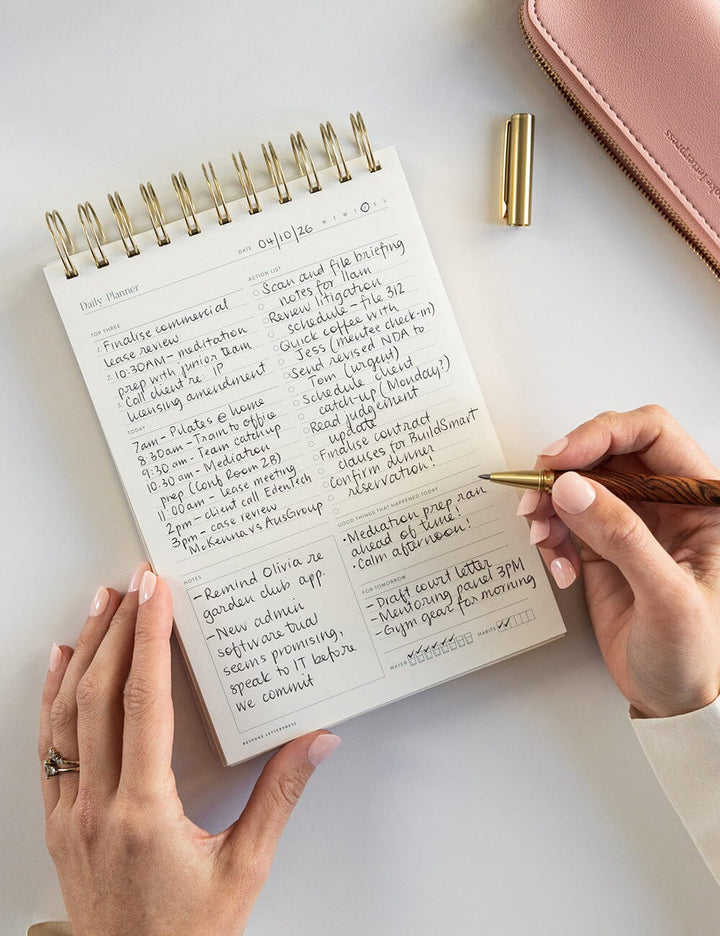 DATE 04/10/26 M T W T F S S
Daily Planner
TOP THREE
1. Finalise commercial
lease review
2. 10:30AM - meditation
prep with junior team
3. Call client re IP
licensing amendment
TODAY
7am - Pilates @ home
8:30am - Train to office
9:30 am - Team catch up
10:30 am - Mediation
prep (Conf Room 2B)
11:00am - lease meeting
2pm - client call EdenTech
3pm - case review
McKenna vs AusGroup
NOTES
- Remind Olivia re
garden club app.
- New admin
software trial
seems promising,
speak to IT before
we commit
BESPOKE LETTERPRESS
ACTION LIST
Scan and file briefing
notes for 11am
Review litigation
schedule - file 312
Quick coffee with
Jess (mentee check-in)
Send revised NDA to
Tom (urgent)
Schedule client
catch-up (Monday?)
Read judgement
update
Finalise contract
clauses for BuildSmart
Confirm dinner
reservation!
GOOD THINGS THAT HAPPENED TODAY
• Mediation prep ran
ahead of time!
• Calm afternoon!
FOR TOMORROW
- Draft court letter
- Mentoring panel 3PM
- Gym gear for morning
WATER
HABITS
letterpress